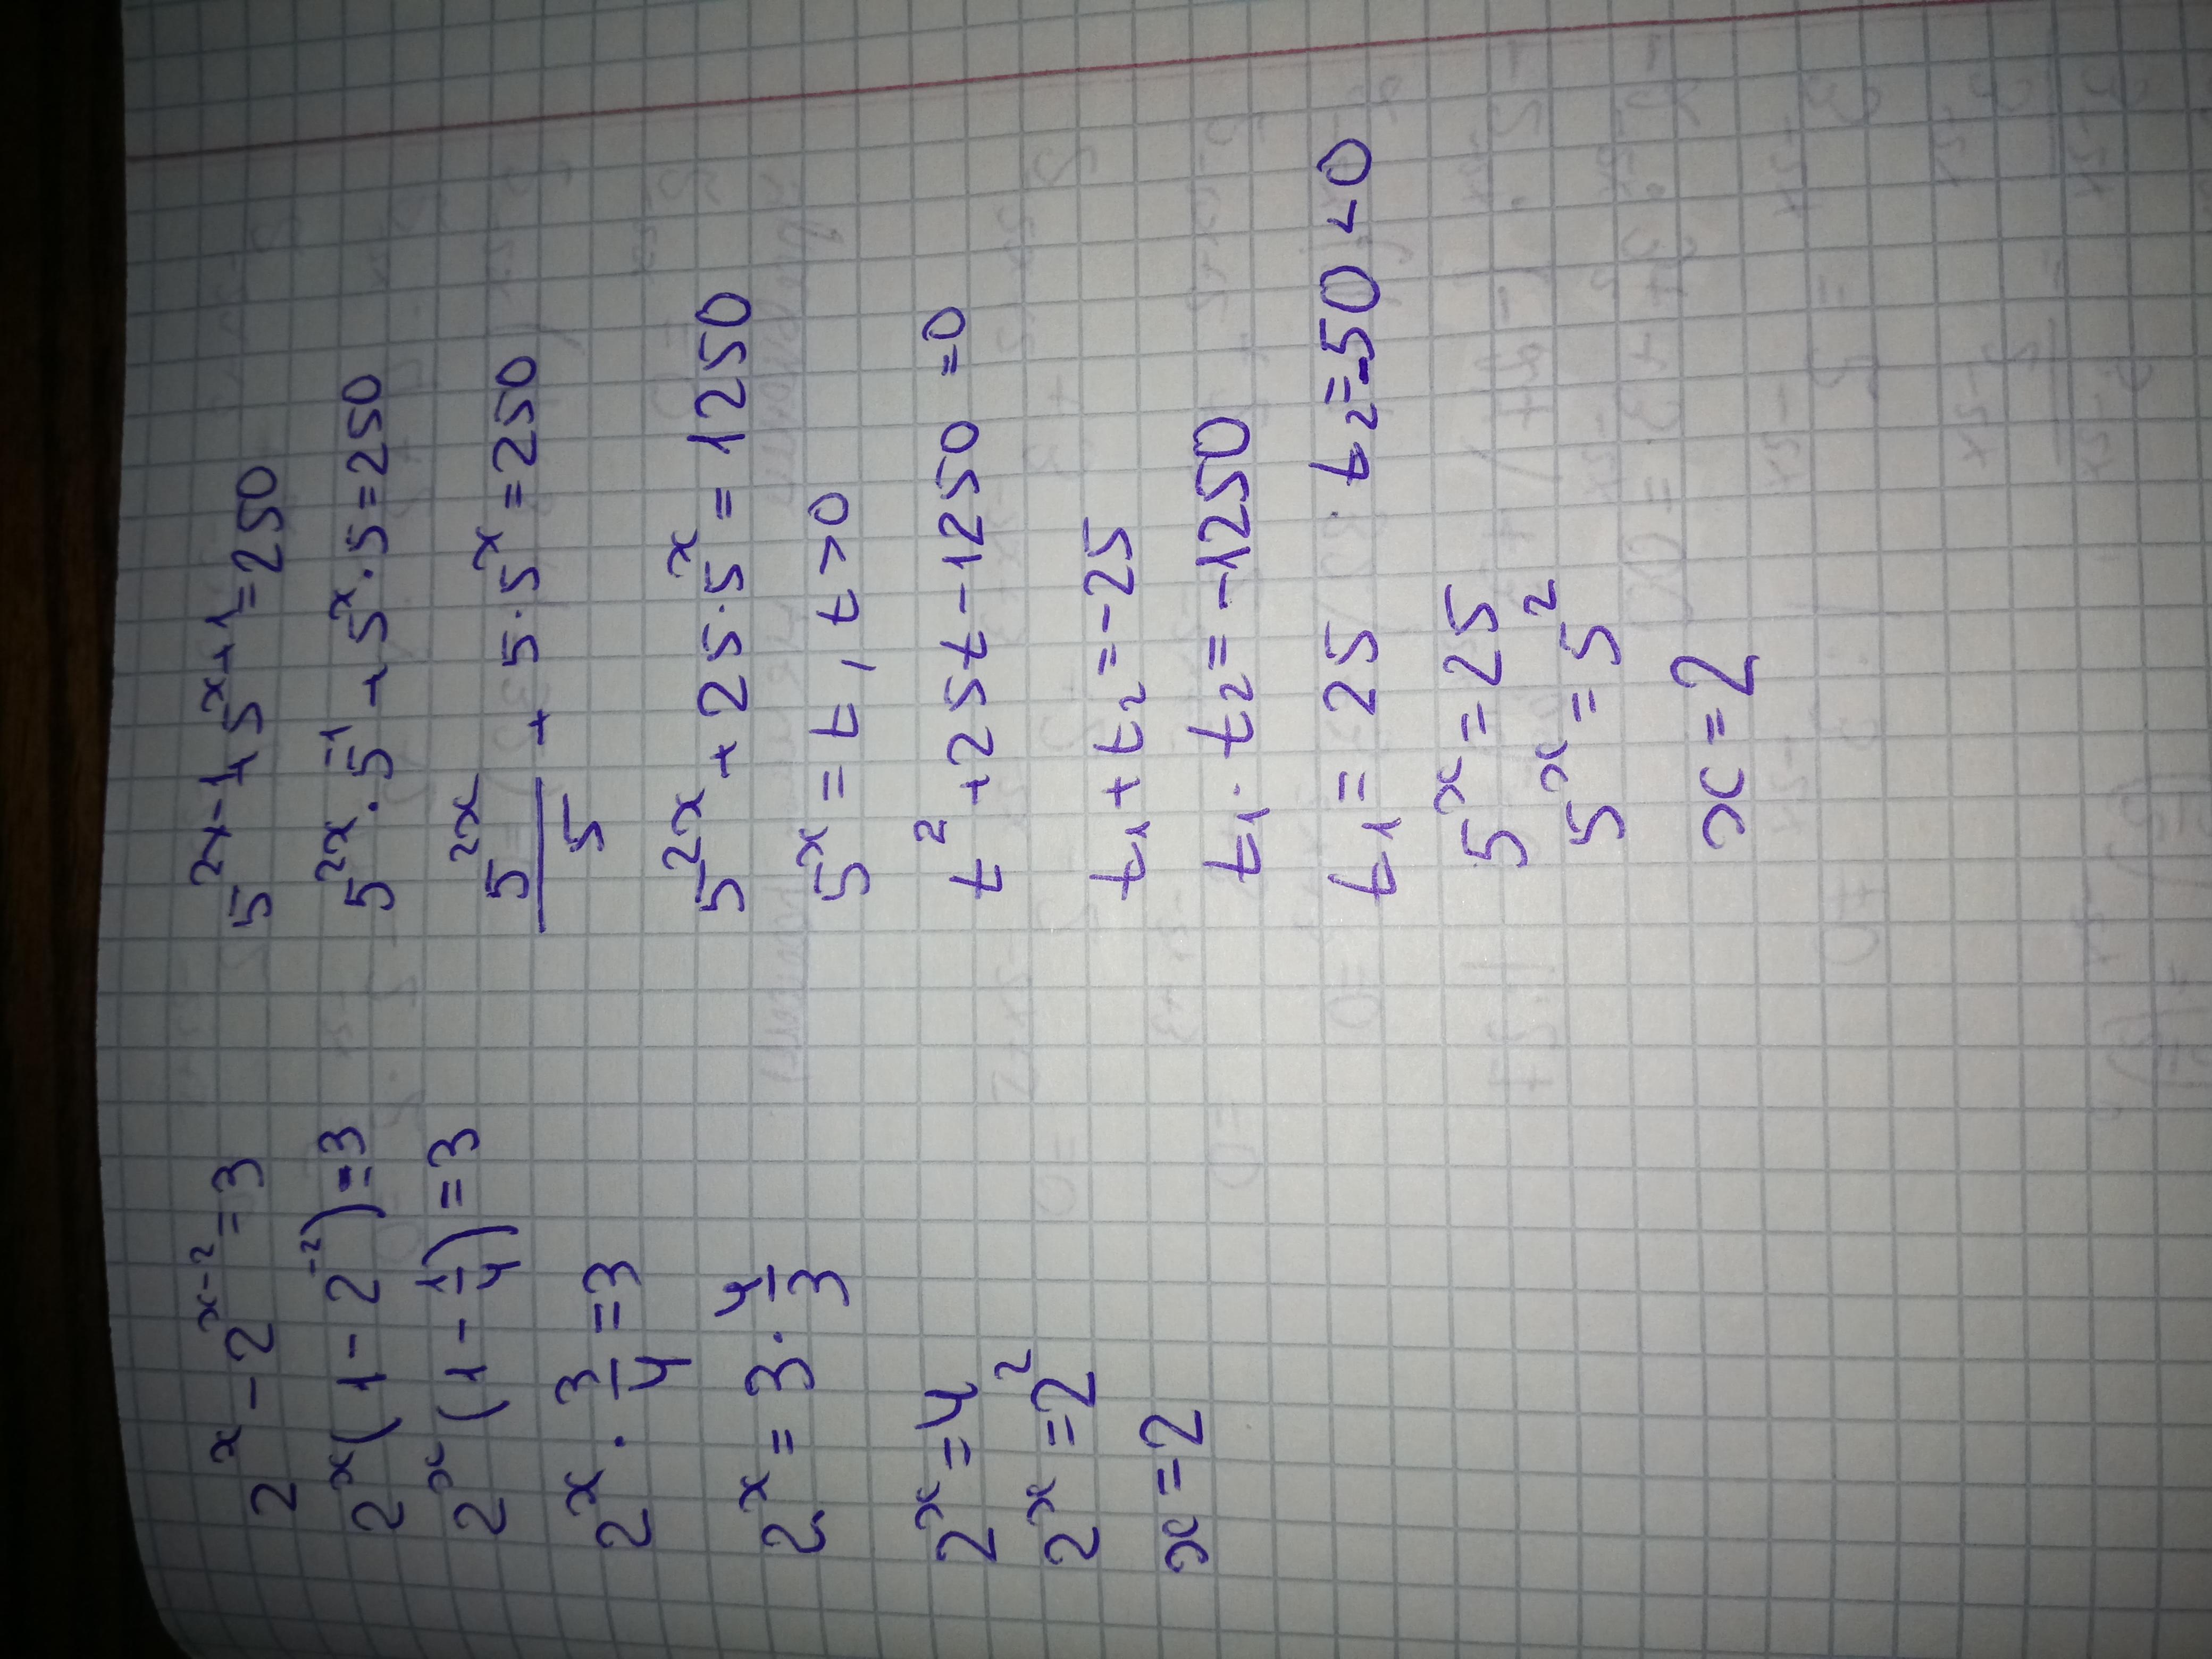 2^x - 2^{x-2} = 3
2^x (1 - 2^{-2}) = 3
2^x (1 - 1/4) = 3
2^x · 3/4 = 3
2^x = 3 · 4/3
2^x = 4
2^x = 2^2
x = 2
5^{2x-1} + 5^{x+1} = 250
5^{2x} · 5^{-1} + 5^x · 5 = 250
5^{2x}/5 + 5 · 5^x = 250
5^{2x} + 25 · 5^x = 1250
5^x = t, t > 0
t^2 + 25t - 1250 = 0
t_1 + t_2 = -25
t_1 · t_2 = -1250
t_1 = 25 t_2 = -50 < 0
5^x = 25
5^x = 5^2
x = 2